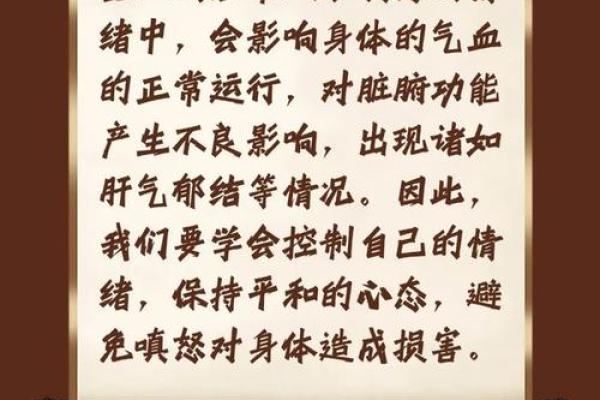 绪中，会影响身体的气血
的正常运行，对脏腑功能
产生不良影响，出现诸如
肝气郁结等情况。因此，
我们要学会控制自己的情
绪，保持平和的心态，避
免嗔怒对身体造成损害。